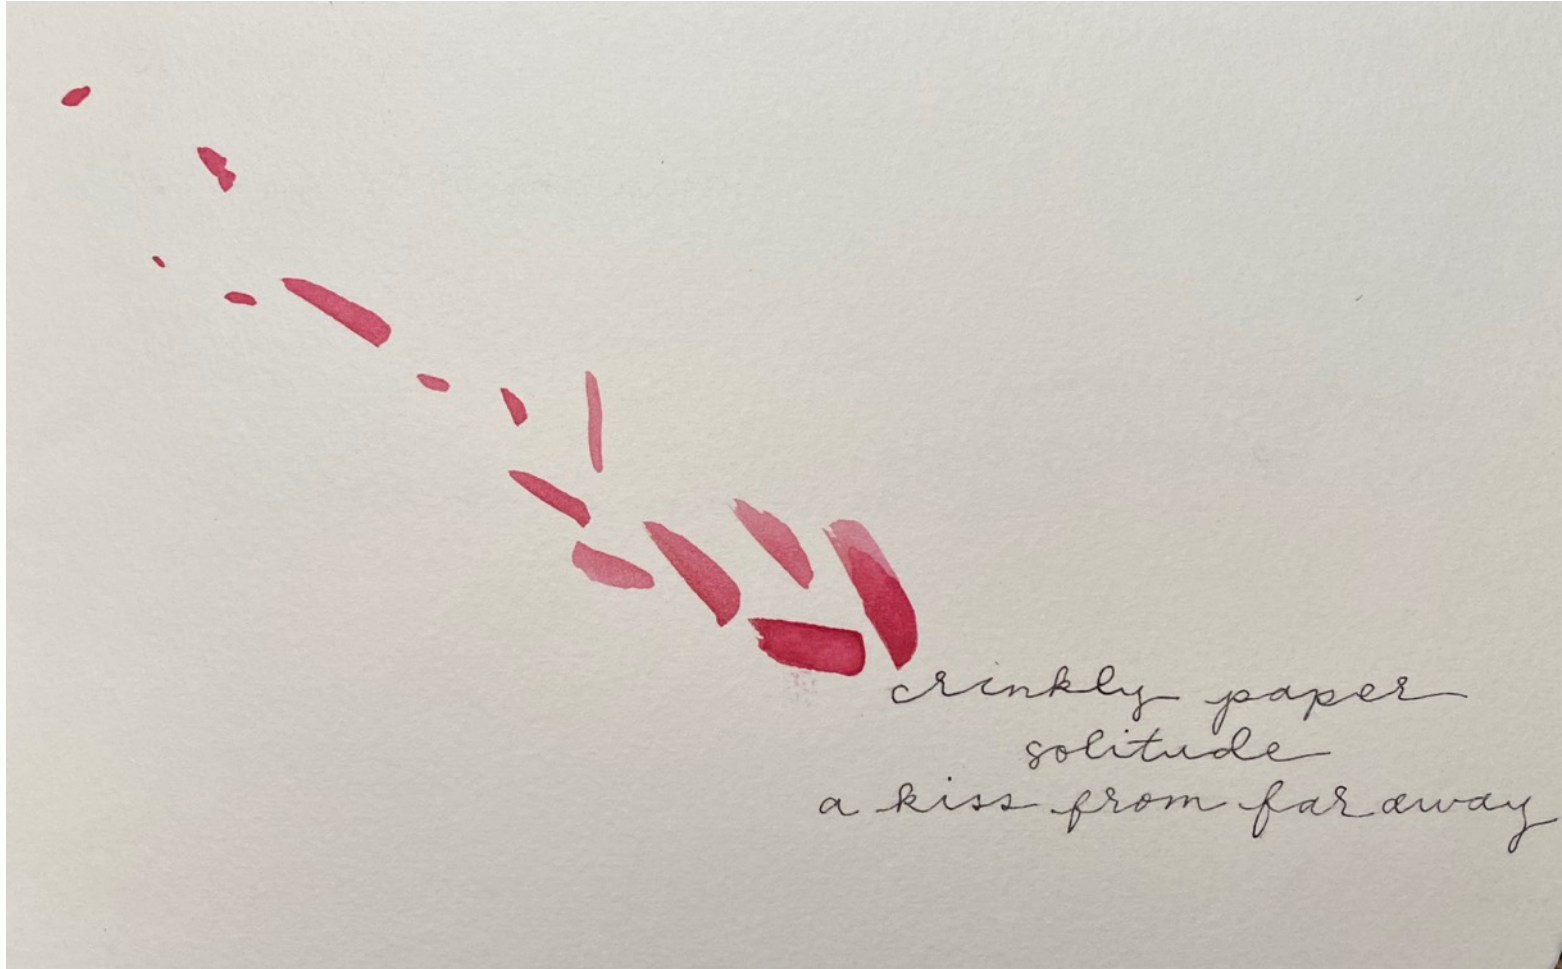 crinkly paper
solitude
a kiss from far away